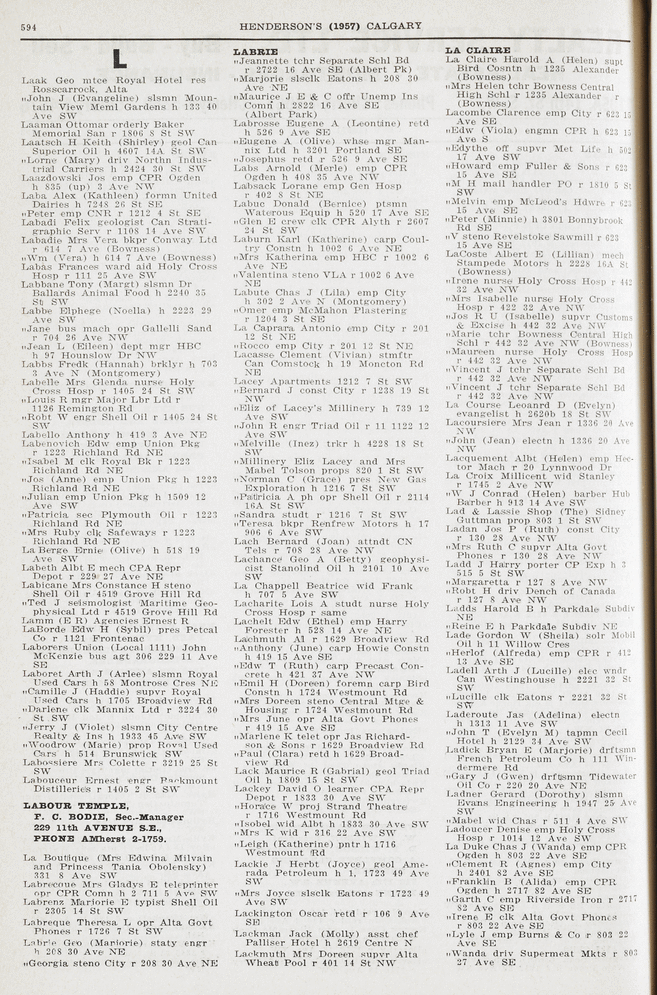 594
HENDERSON'S (1957) CALGARY
L
Laak Geo mtce Royal Hotel res
Rosscarrock, Alta
"John J (Evangeline) slsmn Moun-
tain View Meml Gardens h 133 40
Ave SW
Laaman Ottomar orderly Baker
Memorial San r 1806 8 St SW
Laatsch H Keith (Shirley) geol Can
Superior Oil h 4607 14A St SW
"Lorne (Mary) driv Northn Indus-
trial Carriers h 2424 30 St SW
Laazdowski Jos emp CPR Ogden
h 835 (up) 3 Ave NW
Laba Alex (Kathleen) formn United
Dairies h 7248 26 St SE
"Peter emp CNR r 1212 4 St SE
Labadi Felix geologist Can Strati-
graphic Serv r 1108 14 Ave SW
Labadie Mrs Vera bkpr Conway Ltd
r 614 7 Ave (Bowness)
"Wm (Vera) h 614 7 Ave (Bowness)
Labas Frances ward aid Holy Cross
Hosp r 111 25 Ave SW
Labbane Tony (Margt) slsmn Dr
Ballards Animal Food h 2240 35
St SW
Labbe Elphege (Noella) h 2223 29
Ave SW
"Jane bus mach opr Gallelli Sand
r 704 26 Ave NW
"Jean L (Eileen) dept mgr HBC
h 97 Hounslow Dr NW
Labbs Fredk (Hannah) brklyr h 703
3 Ave N (Montgomery)
Labelle Mrs Glenda nurse Holy
Cross Hosp r 1405 24 St SW
"Louis R mgr Major Lbr Ltd r
1126 Remington Rd
"Robt W engr Shell Oil r 1405 24 St
SW
Labello Anthony h 419 3 Ave NE
Labenovich Edw emp Union Pkg
r 1223 Richland Rd NE
"Isabel M clk Royal Bk r 1223
Richland Rd NE
"Jos (Anne) emp Union Pkg h 1223
Richland Rd NE
"Julian emp Union Pkg h 1509 12
Ave SW
"Patricia sec Plymouth Oil r 1223
Richland Rd NE
"Mrs Ruby clk Safeways r 1223
Richland Rd NE
La Berge Ernie (Olive) h 518 19
Ave SW
Labeth Albt E mech CPA Repr
Depot r 229 27 Ave NE
Labicane Mrs Constance H steno
Shell Oil r 4519 Grove Hill Rd
"Ted J seismologist Maritime Geo-
physical Ltd r 4519 Grove Hill Rd
Lamm (E R) Agencies Ernest R
LaBorde Edw H (Sybil) pres Petcal
Co r 1121 Frontenac
Laborers Union (Local 1111) John
McKenzie bus agt 306 229 11 Ave
SE
Laboret Arth J (Arlee) slsmn Royal
Used Cars h 58 Montrose Cres NE
"Camille J (Haddie) supvr Royal
Used Cars h 1705 Broadview Rd
"Darlene clk Mannix Ltd r 3224 30
St SW
"Jerry J (Violet) slsmn City Centre
Realty & Ins h 1933 45 Ave SW
"Woodrow (Marie) prop Royal Used
Cars h 514 Brunswick SW
Labossiere Mrs Colette r 3219 25 St
SW
Labouceur Ernest engr Parkmount
Distilleries r 1405 2 St SW
LABOUR TEMPLE,
F. C. BODIE, Sec.-Manager
229 11th AVENUE S.E.,
PHONE AMherst 2-1759.
La Boutique (Mrs Edwina Milvain
and Princess Tania Obolensky)
331 8 Ave SW
Labrecque Mrs Gladys E teleprinter
opr CPR Comn h 2 711 5 Ave SW
Labrenz Marjorie E typist Shell Oil
r 2305 14 St SW
Labreque Theresa L opr Alta Govt
Phones r 1726 7 St SW
Labrie Geo (Marjorie) staty engr
h 208 30 Ave NE
"Georgia steno City r 208 30 Ave NE
LABRIE
"Jeannette tchr Separate Schl Bd
r 2722 16 Ave SE (Albert Pk)
"Marjorie slsclk Eatons h 208 30
Ave NE
"Maurice J E & C offr Unemp Ins
Comn h 2822 16 Ave SE
(Albert Park)
Labrosse Eugene A (Leontine) retd
h 526 9 Ave SE
"Eugene A (Olive) whse mgr Man-
nix Ltd h 3201 Portland SE
"Josephus retd r 526 9 Ave SE
Labs Arnold (Merle) emp CPR
Ogden h 408 35 Ave NW
Labsack Lorane emp Gen Hosp
r 402 8 St NE
Labuc Donald (Bernice) ptsmn
Waterous Equip h 520 17 Ave SW
"Glen H crew clk CPR Alyth r 2607
24 St SW
Laburn Karl (Katherine) carp Coul-
try Constn h 1002 6 Ave NE
"Mrs Katherina emp HBC r 1002 6
Ave NE
"Valentina steno VLA r 1002 6 Ave
NE
Labute Chas J (Lila) emp City
h 302 2 Ave N (Montgomery)
"Omer emp McMahon Plastering
r 1204 3 St SE
La Caprara Antonio emp City r 201
12 St NE
"Rocco emp City r 201 12 St NE
Lacasse Clement (Vivian) stmftr
Can Comstock h 19 Moncton Rd
NE
Lacey Apartments 1212 7 St SW
"Bernard J const City r 1238 19 St
NW
"Eliz of Lacey's Millinery h 739 12
Ave SW
"John R engr Triad Oil r 11 1122 12
Ave SW
"Melville (Inez) trkr h 4228 18 St
SW
"Millinery Eliz Lacey and Mrs
Mabel Tolson props 820 1 St SW
"Norman C (Grace) pres New Gas
Exploration h 1216 7 St SW
"Patricia A ph opr Shell Oil r 2114
16A St SW
"Sandra studt r 1216 7 St SW
"Teresa bkpr Renfrew Motors h 17
906 6 Ave SW
Lach Bernard (Joan) attndt CN
Tels r 708 28 Ave NW
Lachance Geo A (Betty) geophysi-
cist Stanolind Oil h 2101 10 Ave
SW
La Chappell Beatrice wid Frank
h 707 5 Ave SW
Lacharite Lois A studt nurse Holy
Cross Hosp r same
Lachelt Edw (Ethel) emp Harry
Forester h 528 14 Ave NE
Lachmuth Al r 1629 Broadview Rd
"Anthony (June) carp Howie Constn
h 419 15 Ave SE
"Edw T (Ruth) carp Precast Con-
crete h 421 37 Ave NW
"Emil H (Doreen) foremn carp Bird
Constn h 1724 Westmount Rd
"Mrs Doreen steno Central Mtge &
Housing r 1724 Westmount Rd
"Mrs June opr Alta Govt Phones
r 419 15 Ave SE
"Marlene K telet opr Jas Richard-
son & Sons r 1629 Broadview Rd
"Paul (Clara) retd h 1629 Broad-
view Rd
Lack Maurice R (Gabrial) geol Triad
Oil h 1809 15 St SW
Lackey David O learner CPA Repr
Depot r 1833 30 Ave SW
"Horace W proj Strand Theatre
r 1716 Westmount Rd
"Isobel wid Albt h 1833 30 Ave SW
"Mrs K wid r 316 22 Ave SW
"Leigh (Katherine) pntr h 1716
Westmount Rd
Lackie J Herbt (Joyce) geol Ame-
rada Petroleum h 1, 1723 49 Ave
SW
"Mrs Joyce slsclk Eatons r 1723 49
Ave SW
Lackington Oscar retd r 106 9 Ave
SE
Lackman Jack (Molly) asst chef
Palliser Hotel h 2619 Centre N
Lackmuth Mrs Doreen supvr Alta
Wheat Pool r 401 14 St NW
LA CLAIRE
La Claire Harold A (Helen) supt
Bird Constn h 1235 Alexander
(Bowness)
"Mrs Helen tchr Bowness Central
High Schl r 1235 Alexander r
(Bowness)
Lacombe Clarence emp City r 623 15
Ave SE
"Edw (Viola) engmn CPR h 623 15
Ave S
"Edythe off supvr Met Life h 502
17 Ave SW
"Howard emp Fuller & Sons r 623
15 Ave SE
"M H mail handler PO r 1810 5 St
SW
"Melvin emp McLeod's Hdwre r 623
15 Ave SE
"Peter (Minnie) h 3801 Bonnybrook
Rd SE
"V steno Revelstoke Sawmill r 623
15 Ave SE
LaCoste Albert E (Lillian) mech
Stampede Motors h 2228 16A St
(Bowness)
"Irene nurse Holy Cross Hosp r 442
32 Ave NW
"Mrs Isabelle nurse Holy Cross
Hosp r 422 32 Ave NW
"Jos R U (Isabelle) supvr Customs
& Excise h 442 32 Ave NW
"Marie tchr Bowness Central High
Schl r 442 32 Ave NW (Bowness)
"Maureen nurse Holy Cross Hosp
r 442 32 Ave NW
"Vincent J tchr Separate Schl Bd
r 442 32 Ave NW
"Vincent J tchr Separate Schl Bd
r 442 32 Ave NW
La Course Leoanrd D (Evelyn)
evangelist h 2620b 18 St SW
Lacoursiere Mrs Jean r 1336 20 Ave
NW
"John (Jean) electn h 1336 20 Ave
NW
Lacquement Albt (Helen) emp Hec-
tor Mach r 20 Lynnwood Dr
La Croix Millicent wid Stanley
r 1745 2 Ave NW
"W J Conrad (Helen) barber Hub
Barber h 913 14 Ave SW
Lad & Lassie Shop (The) Sidney
Guttman prop 803 1 St SW
Ladan Jos P (Ruth) const City
r 130 28 Ave NW
"Mrs Ruth C supvr Alta Govt
Phones r 130 28 Ave NW
Ladd J Harry porter CP Exp h 3
515 5 St SW
"Margaretta r 127 8 Ave NW
"Robt H driv Dench of Canada
r 127 8 Ave NW
Ladds Harold B h Parkdale Subdiv
NE
"Reine E h Parkdale Subdiv NE
Lade Gordon W (Sheila) solr Mobil
Oil h 11 Willow Cres
"Herlof (Alfreda) emp CPR r 412
13 Ave SW
Ladell Arth J (Lucille) elec wndr
Can Westinghouse h 2221 32 St
SW
"Lucille clk Eatons r 2221 32 St
SW
Laderoute Jas (Adelina) electn
h 1313 11 Ave SW
"John T (Evelyn M) tapmn Cecil
Hotel h 2129 34 Ave SW
Ladick Bryan E (Marjorie) drftsmn
French Petroleum Co h 111 Win-
dermere Rd
"Gary J (Gwen) drftsmn Tidewater
Oil Co r 220 20 Ave NE
Ladner Gerard (Dorothy) slsmn
Evans Engineering h 1947 25 Ave
SW
"Mabel wid Chas r 511 4 Ave SW
Ladoucer Denise emp Holy Cross
Hosp r 1014 12 Ave SW
La Duke Chas J (Wanda) emp CPR
Ogden h 803 22 Ave SE
"Clement R (Agnes) emp City
h 2401 82 Ave SE
"Franklin B (Alida) emp CPR
Ogden h 2717 82 Ave SE
"Garth C emp Riverside Iron r 2717
82 Ave SE
"Irene E clk Alta Govt Phones
r 803 22 Ave SE
"Lyle J emp Burns & Co r 803 22
Ave SE
"Wanda driv Supermeat Mkts r 803
27 Ave SE